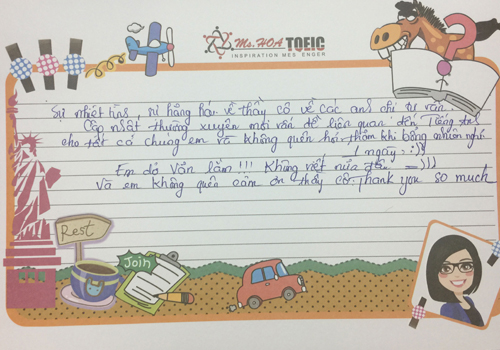 Ms. HOA TOEIC
INSPIRATION MESSENGER
Sự nhiệt tình, sự hăng hái về thầy cô về các anh chị tư vấn
Cập nhật thường xuyên mọi vấn đề liên quan đến Tiếng Anh
cho tất cả chúng em và không quên hỏi thăm khi bỗng nhiên nghỉ
1 ngày :))
Em dở văn lắm !!! Không viết nữa đâu =)))
Và em không quên cảm ơn thầy cô. Thank you so much
Rest
Join